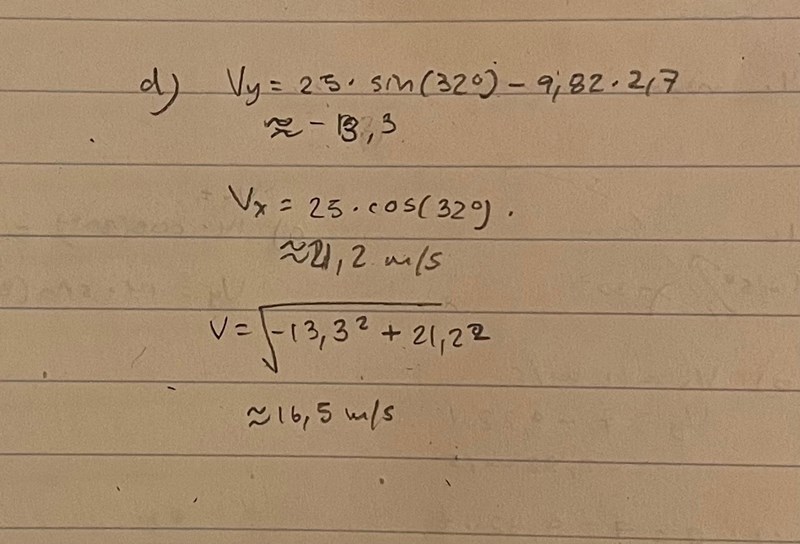 d) Vy = 25 · sin(32°) - 9,82 · 2,7
≈ - 13,3
Vx = 25 · cos(32°).
≈ 21,2 m/s
V = √-13,3² + 21,2²
≈ 16,5 m/s